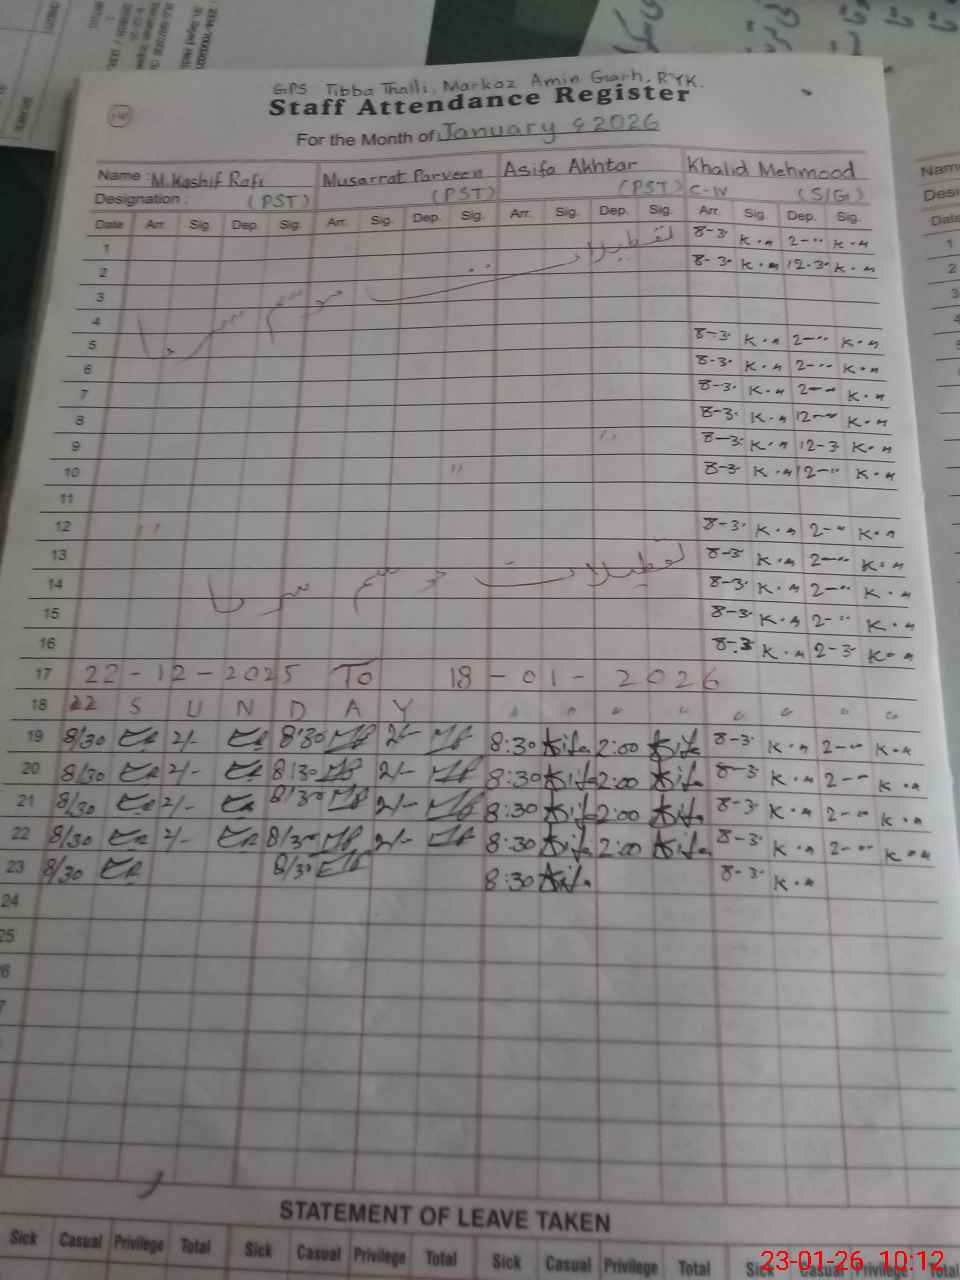 GPS Tibba Thalli, Markaz Amin Garh, RYK.
Staff Attendance Register
For the Month of January 2026
Name : M. Kashif Rafi Musarrat Parveen Asifa Akhtar Khalid Mehmood
Designation : (PST) (PST) (PST) C-IV (S/G)
Date Arr. Sig. Dep. Sig. Arr. Sig. Dep. Sig. Arr. Sig. Dep. Sig. Arr. Sig. Dep. Sig.
1 8-3· K·M 2-·· K·M
2 8-3· K·M 12-3· K·M
تعطیلات موسم سرما
3
4
5 8-3· K·M 2-·· K·M
6 8-3· K·M 2-·· K·M
7 8-3· K·M 2-·· K·M
8 8-3· K·M 12-·· K·M
9 " 8-3· K·M 12-3 K·M
10 " 8-3· K·M 12-·· K·M
11
12 " 8-3· K·M 2-·· K·M
13 8-3· K·M 2-·· K·M
تعطیلات موسم سرما
14 8-3· K·M 2-·· K·M
15 8-3· K·M 2-·· K·M
16 8-3· K·M 2-3· K·M
17 22-12-2025 To 18-01-2026
18 22 S U N D A Y " " " " " " " "
19 8/30 2/- 8:30 2/- 8:30 Asifa 2:00 Asifa 8-3· K·M 2-·· K·M
20 8/30 2/- 8/30 2/- 8:30 Asifa 2:00 Asifa 8-3· K·M 2-·· K·M
21 8/30 2/- 8/30 2/- 8:30 Asifa 2:00 Asifa 8-3· K·M 2-·· K·M
22 8/30 2/- 8/30 2/- 8:30 Asifa 2:00 Asifa 8-3· K·M 2-·· K·M
23 8/30 8/30 8:30 Asifa 8-3· K·M
24
25
6
7
STATEMENT OF LEAVE TAKEN
Sick Casual Privilege Total Sick Casual Privilege Total Sick Casual Privilege Total Sick Casual Privilege Total
23-01-26 10:12